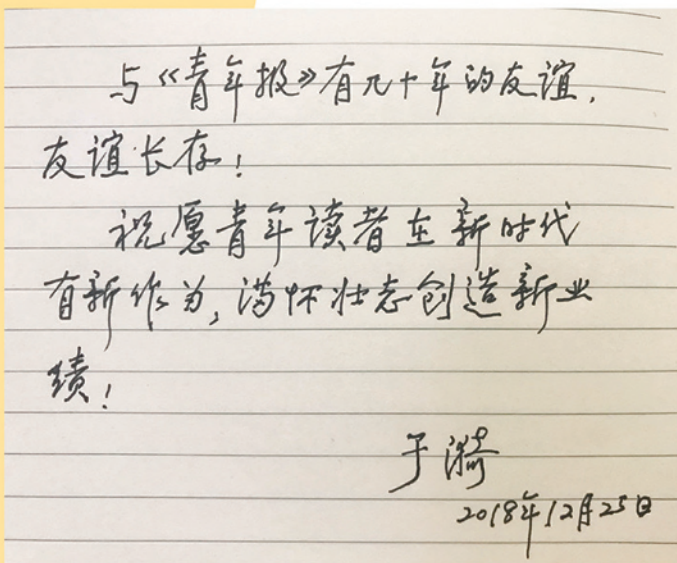 与《青年报》有几十年的友谊，
友谊长存！
祝愿青年读者在新时代
有新作为，满怀壮志创造新业
绩！
于漪
2018年12月25日